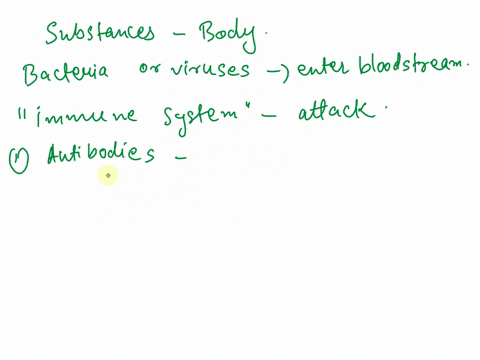 Substances - Body.
Bacteria or viruses -> enter bloodstream.
"immune system" - attack.
(1) Antibodies -